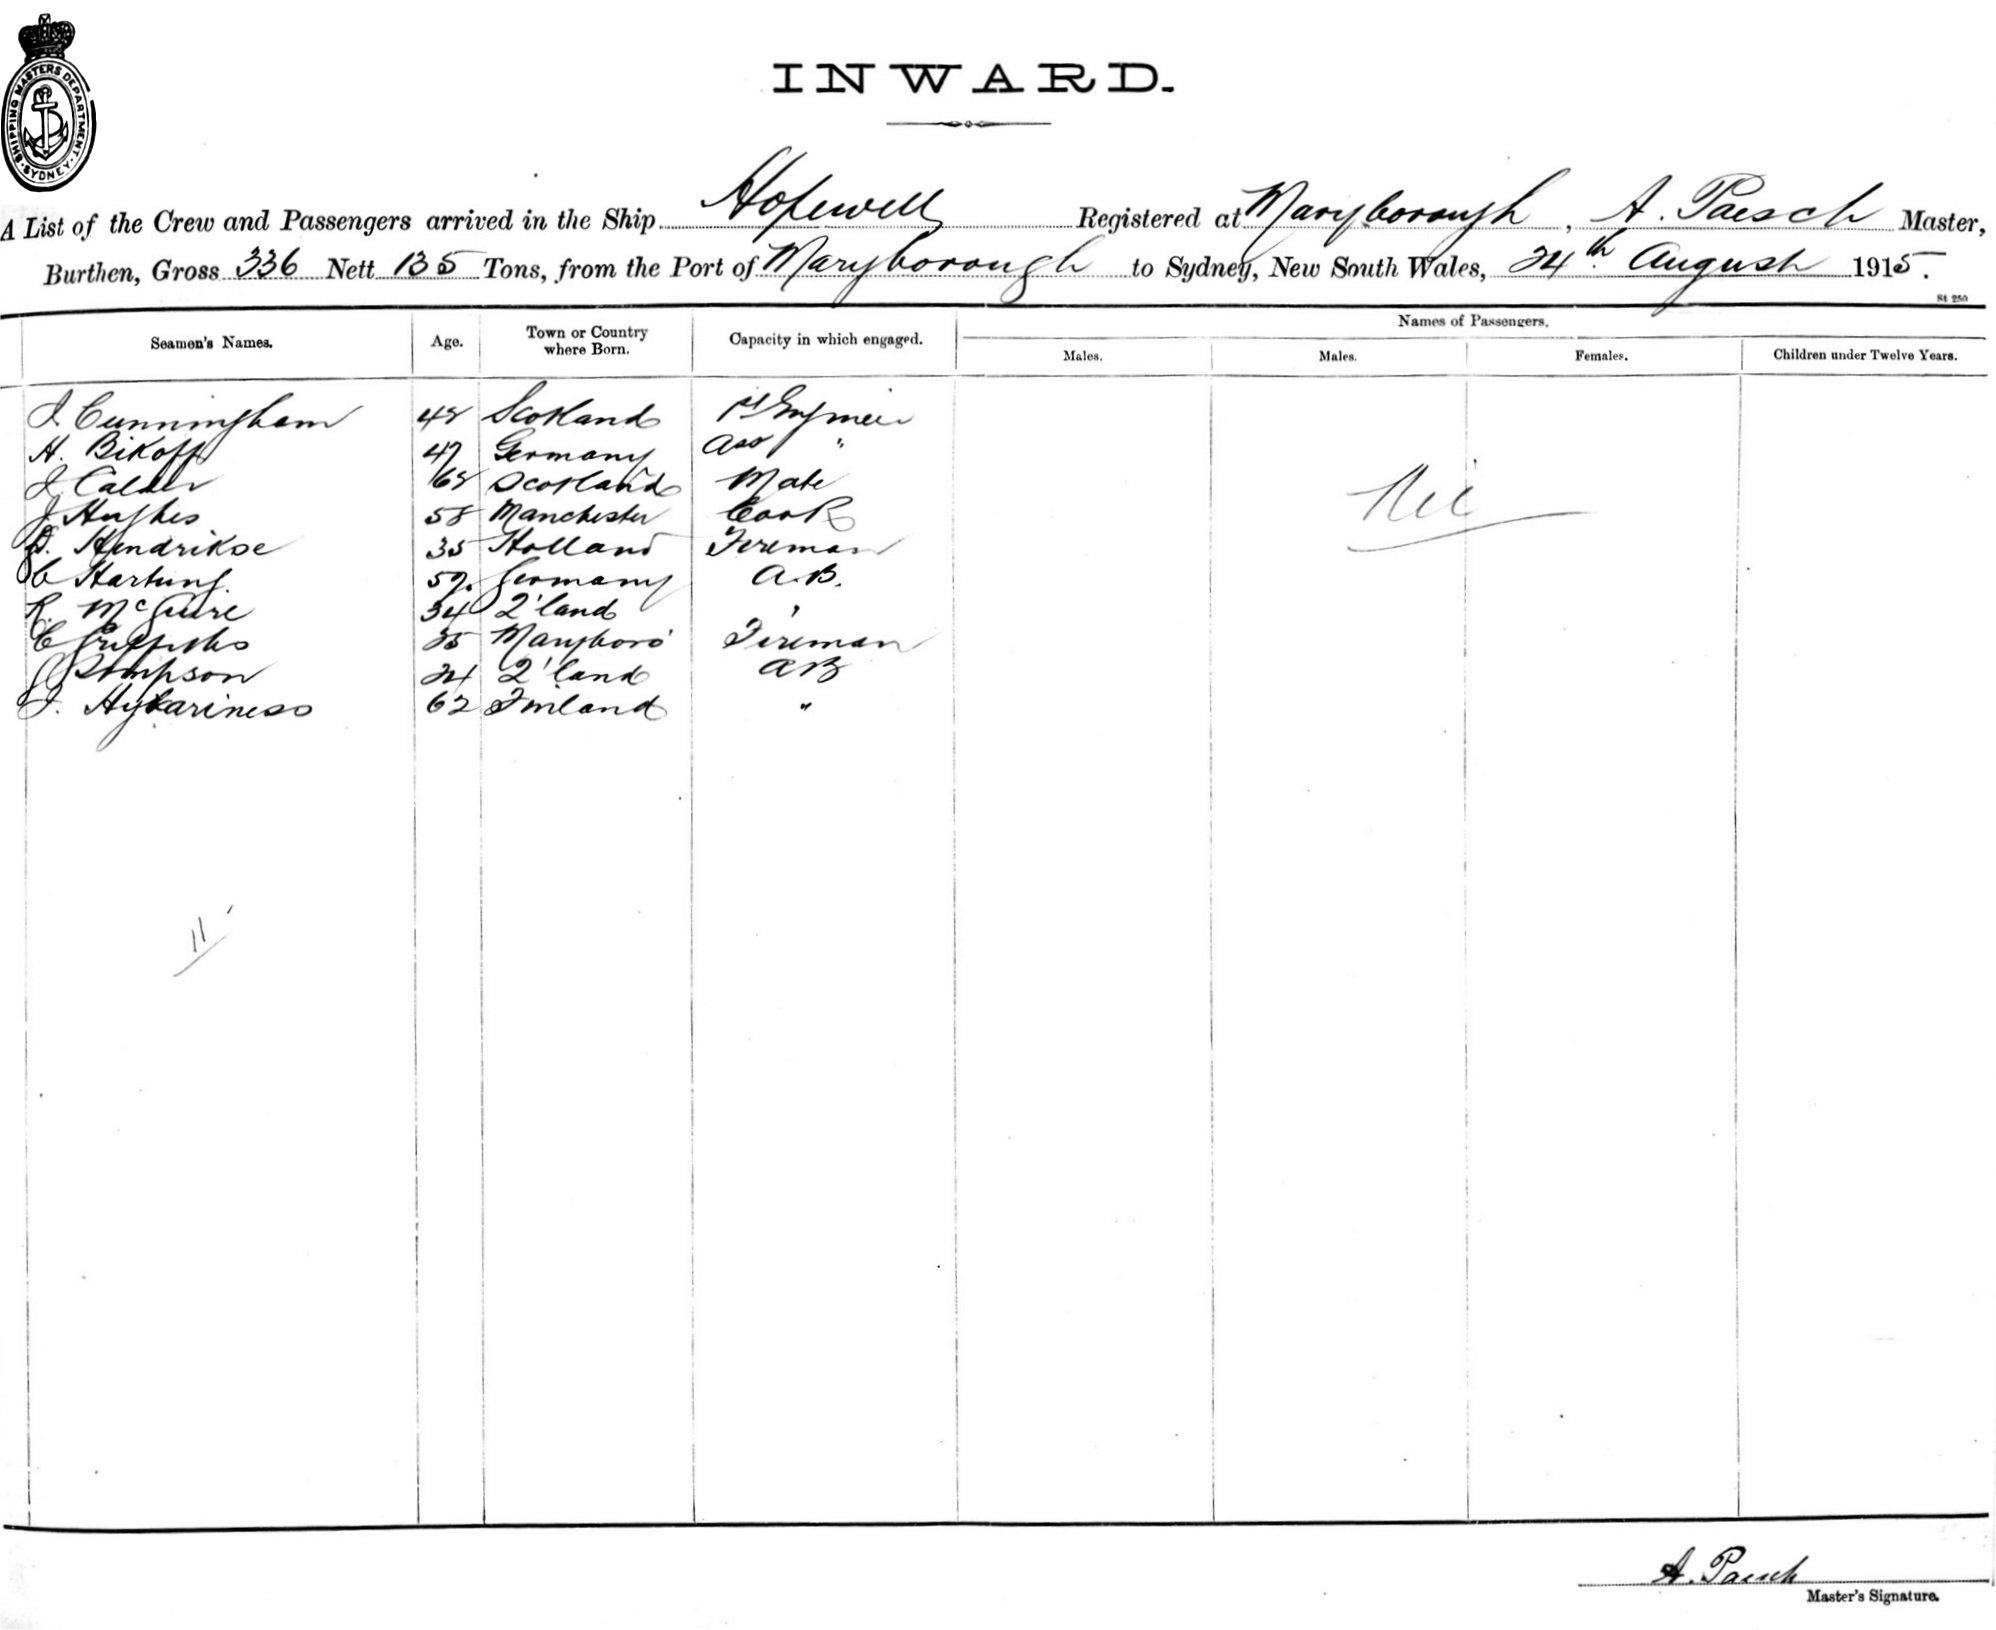 SHIPPING MASTERS DEPARTMENT. SYDNEY.
INWARD.
A List of the Crew and Passengers arrived in the Ship Hopewell Registered at Maryborough, A. Paesch Master,
Burthen, Gross 336 Nett 135 Tons, from the Port of Maryborough to Sydney, New South Wales, 24th August 1915.
St 250
Seamen's Names. Age. Town or Country where Born. Capacity in which engaged. Names of Passengers.
Males. Males. Females. Children under Twelve Years.
J Cunningham 48 Scotland 1st Engineer
H. Bikoff 47 Germany Ass "
J Calder 68 Scotland Mate
J Hughes 58 Manchester Cook
D. Hendrikse 35 Holland Fireman
C Hartung 59. Germany A.B.
R. McGuire 34 Q'land "
C Griffiths 25 Maryboro' Fireman
J Simpson 24 Q'land AB
J. 62 Finland "
Nil
11
A. Paesch
Master's Signature.